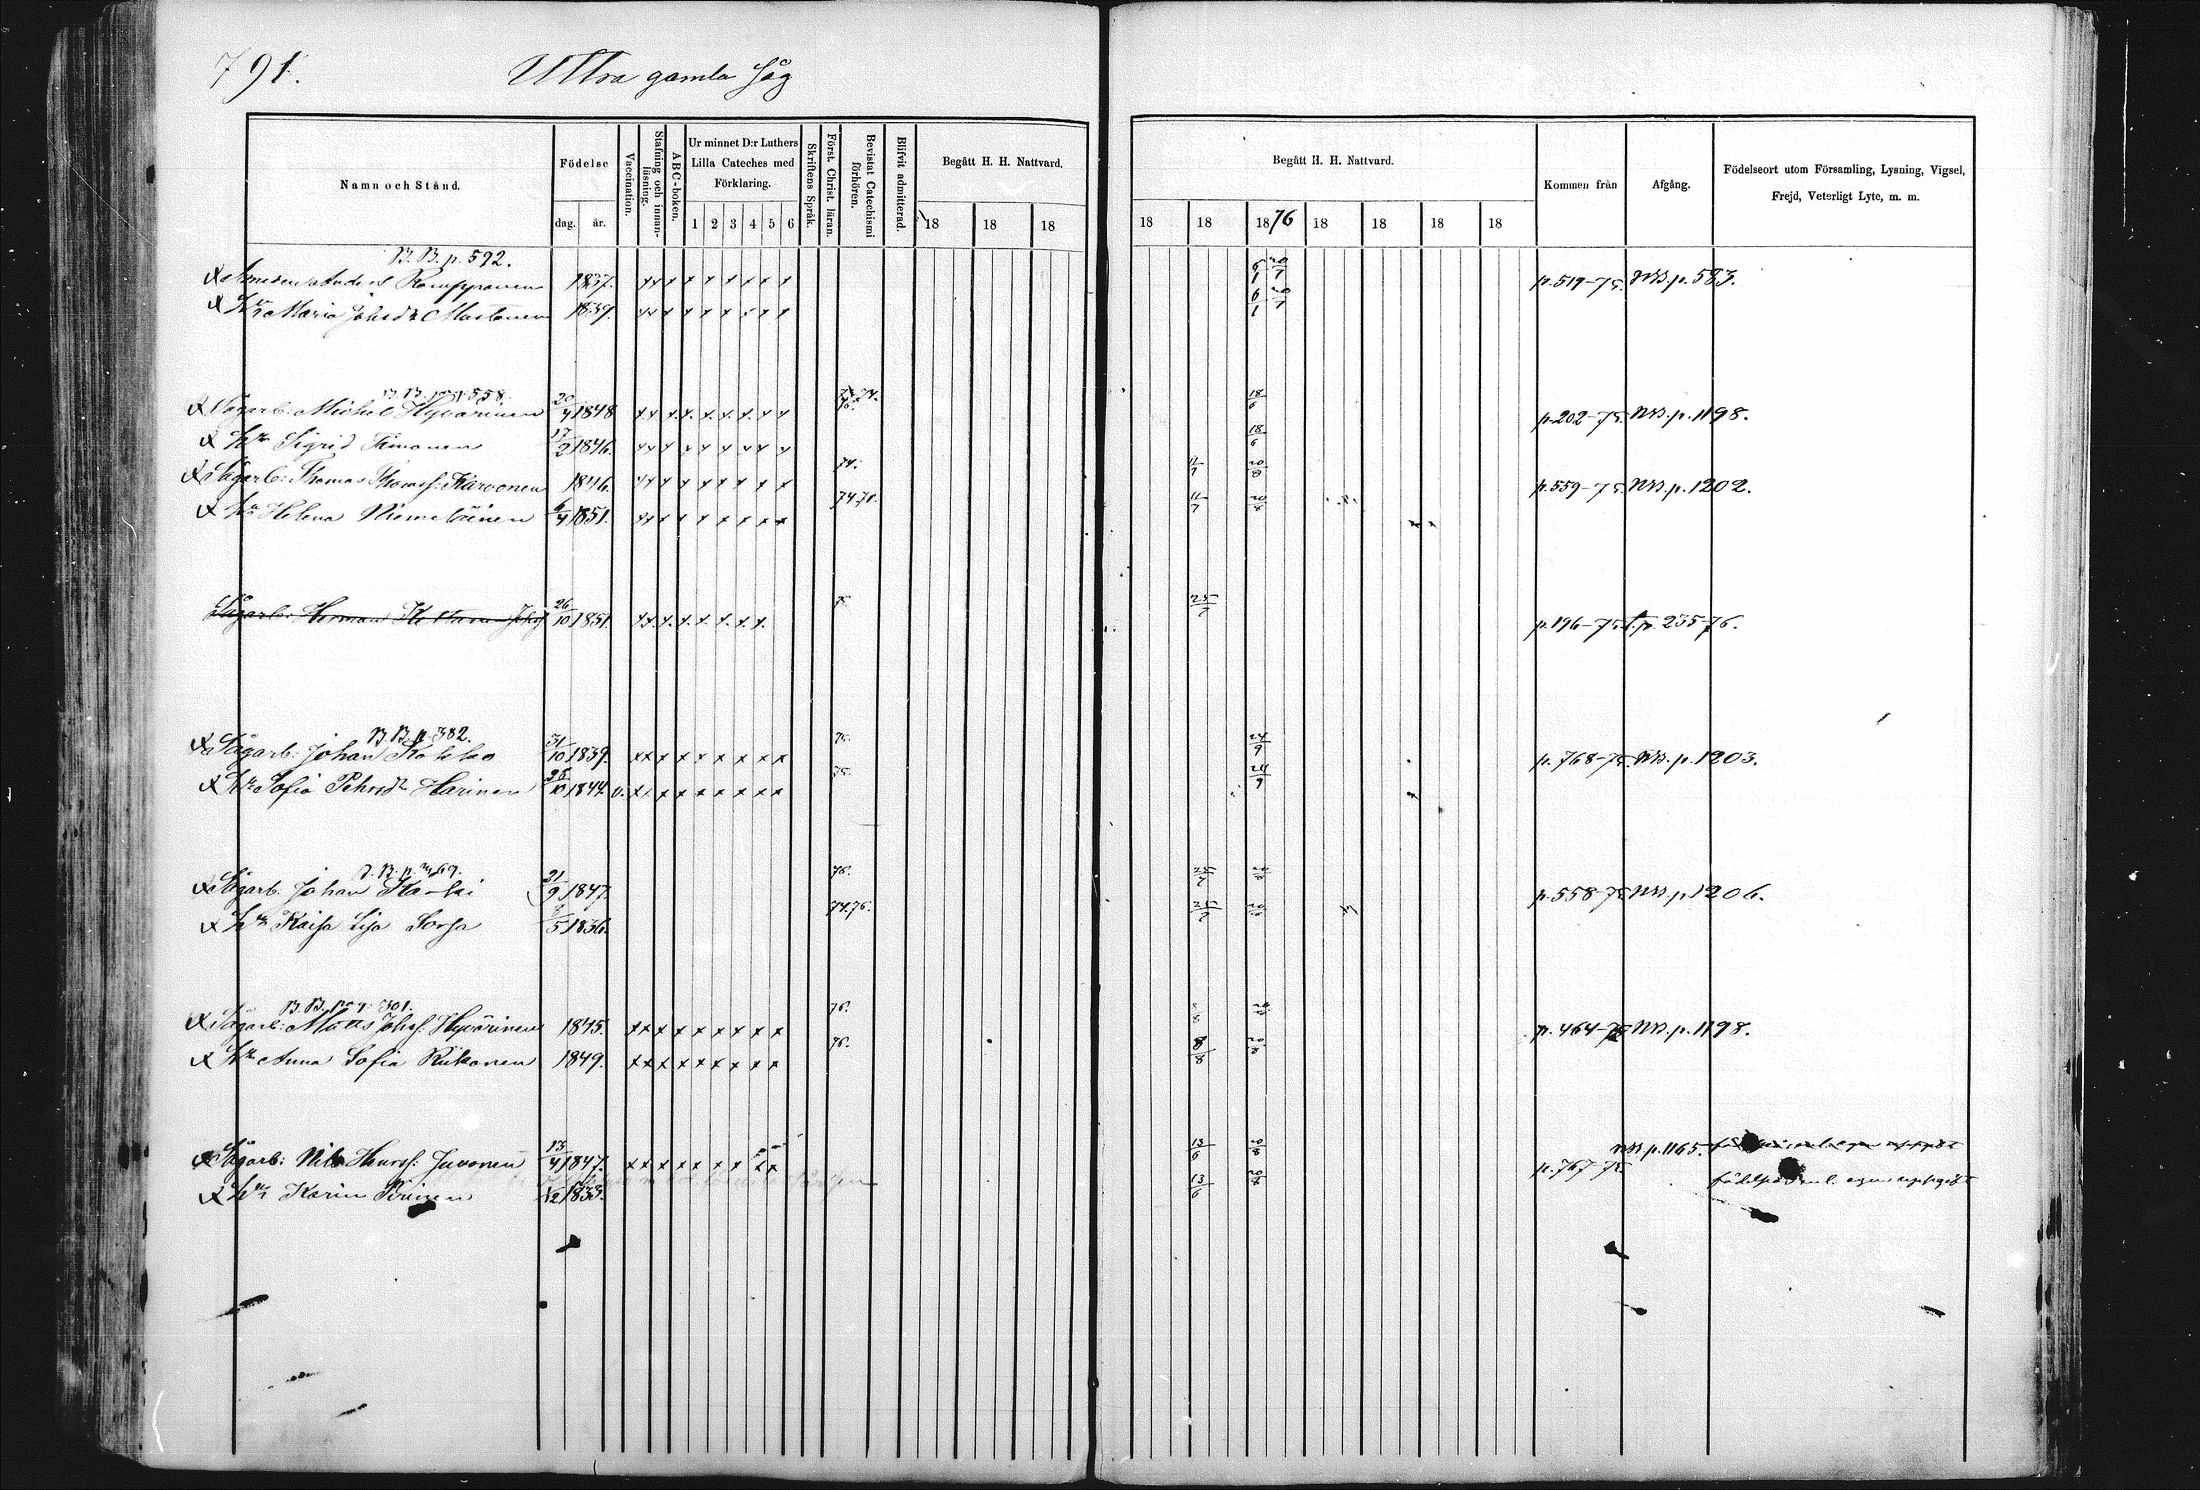 791. Utra gamla såg
Namn och Stånd.
Födelse
dag. år.
Vaccination.
Stafning och innanläsning.
ABC-boken.
Ur minnet D:r Luthers Lilla Cateches med Förklaring.
1 2 3 4 5 6
Skriftens Språk.
Först. Christ. läran.
Bevistat Catechismi förhören.
Blifvit admitterad.
Begått H. H. Nattvard.
18 18 18
Begått H. H. Nattvard.
18 18 1876 18 18 18 18
Kommen från
Afgång.
Födelseort utom Församling, Lysning, Vigsel, Frejd, Veterligt Lyte, m. m.
B. B. p. 592.
Anders Romppanen 1837. x x x x x x x x x 6/1 20/7 p. 519-75. NB. p. 583.
Hr Maria Johsdr Mustonen 1839. x x x x x x x x x 6/1 20/7
558.
Sågarb: Michel Hyvärinen 20/4 1848 x x x x x x x x x 18/6 p. 202-75. NB. p. 1198.
Hr Sigrid Timonen 17/2 1846. x x x x x x x x x 18/6
Sågarb: Thomas Thomsf: Karvonen 1846. x x x x x x x x x 74. 11/7 20/8 p. 559-75. NB. p. 1202.
Hr Helena Nieme 6/4 1851. x x x x x x x x x 11/7 20/8
Sågarb: Herman Johsf 26/10 1851. x x x x x x x x 75. 25/7 p. 196-75. p. 235-76.
B B p 382.
Sågarb. Johan Kokko 31/10 1839. x x x x x x x x x 75. 24/9 p. 768-75. NB. p. 1203.
Hr Sofia Pehrsdr Harinen 26/10 1844 v. x x x x x x x x x 75. 24/9
Sågarb. Johan 21/9 1847. 76. 25/7 p. 558-75 NB. p. 1206.
Hr Kaisa Lisa Sorsa /5 1836. 74.76. 25/7
B. B. 301.
Sågarb: Matts Johsf: Hyvärinen 1845. x x x x x x x x x 76. 8 p. 464-75 NB. p. 1198.
Hr Anna Sofia Riikonen 1849. x x x x x x x x x 76. 8/8 20/8
Sågarb: Nils Henrsf: Juvonen 13/4 1847. x x x x x x x x x 13/6 20/8 p. 767-75. NB p. 1165.
Hr Karin Pirinen 1833. 13/6 20/8 egen uppgift